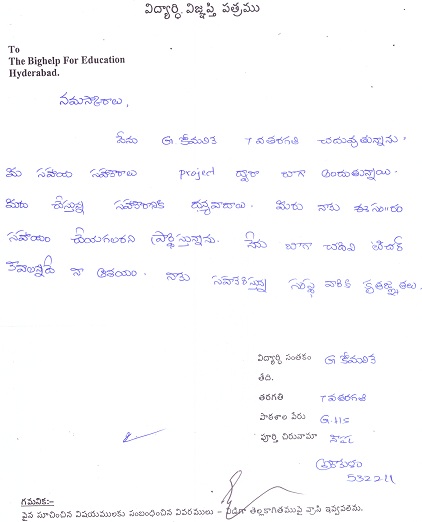 విద్యార్ధి విజ్ఞప్తి పత్రము
To
The Bighelp For Education
Hyderabad.
నమస్కారాలు,
నేను G. కోమలికె 7 వ తరగతి చదువుతున్నాను.
మీ సహాయ సహకారాలు project ద్వారా బాగా అందుతున్నాయి.
మీరు చేస్తున్న సహకారానికి ధన్యవాదాలు. మీరు నాకు ఈ సం||రం
సహాయం చేయగలరని ప్రార్థిస్తున్నాను. నేను బాగా చదివి టీచర్
కావాలన్నదే నా ఆశయం. నాకు సహకరిస్తున్న సంస్థ వారికి కృతజ్ఞతలు.
విద్యార్ధి సంతకం G. కోమలికె
తేది.
తరగతి 7 వ తరగతి
పాఠశాల పేరు G.H.S
పూర్తి చిరునామా
532211
గమనిక:-
పైన సూచించిన విషయములకు సంబంధించిన వివరములు – విడిగా తెల్లకాగితముపై వ్రాసి ఇవ్వవలెను.